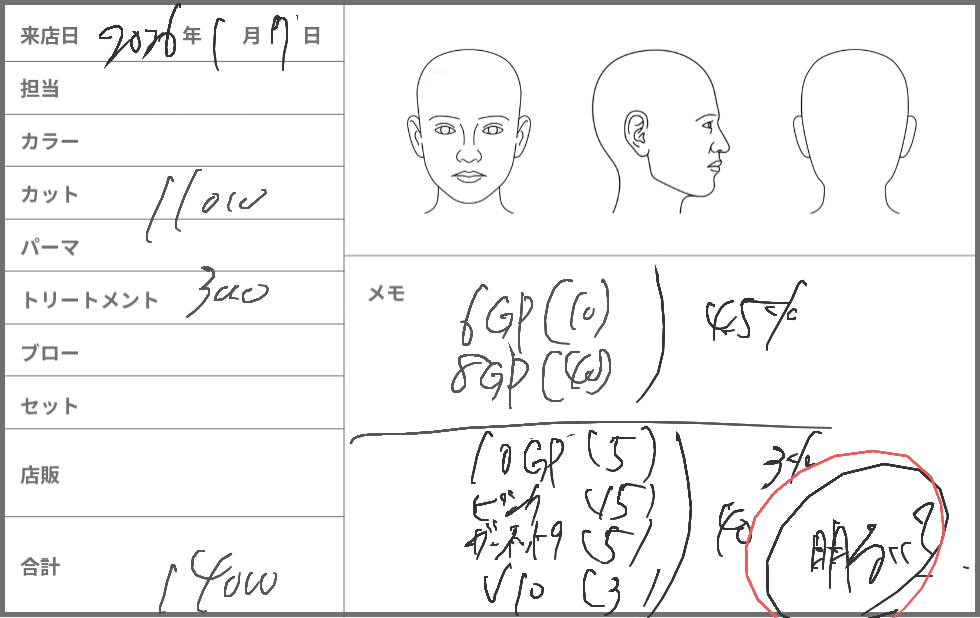 来店日 2026年1月7日
担当
カラー
カット 11000
パーマ
トリートメント 3000
ブロー
セット
店販
合計 14000
メモ
6GP (10)
8GP (40)
45%
10GP (5)
ピンク 15)
ガーネット9 (5)
V10 (3)
3%
40